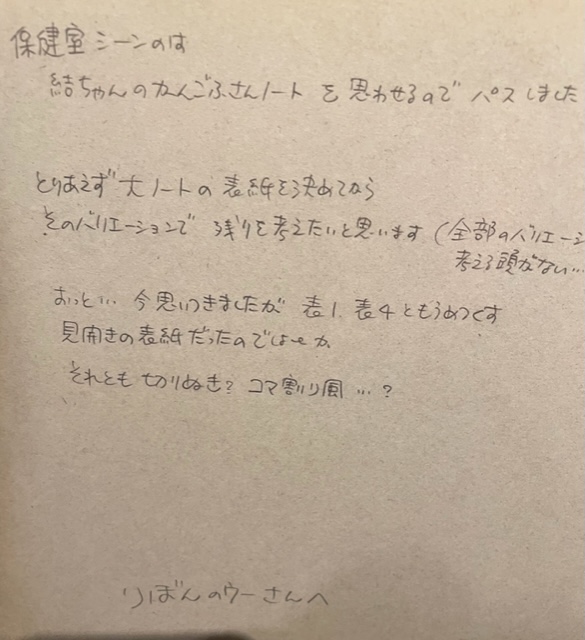 保健室シーンのは
結ちゃんのかんごふさんノートを思わせるのでパスしました
とりあえず大ノートの表紙を決めてから
そのバリエーションで残りを考えたいと思います(全部のバリエーシ
考える頭がない…
おっと… 今思いつきましたが 表1. 表4ともうめつくす
見開きの表紙だったのでしょーか
それとも切りぬき?コマ割り風…?
りぼんのウーさんへ